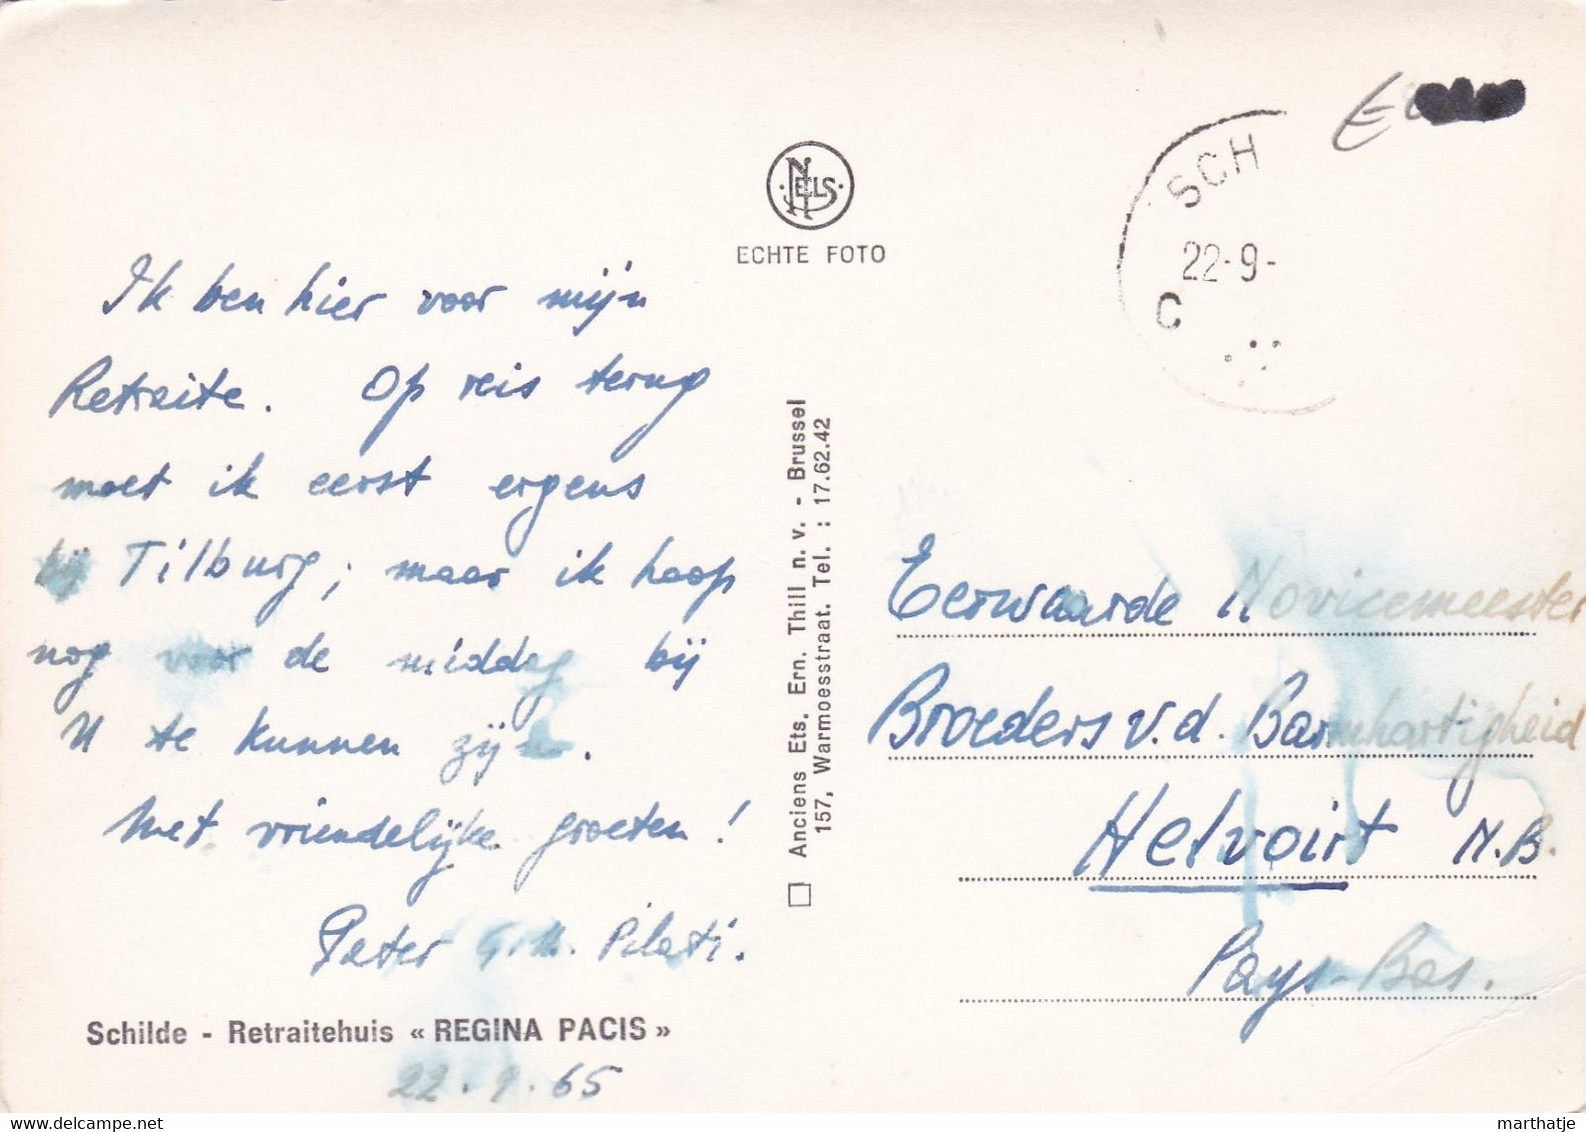 Ik ben hier voor mijn
Retraite. Op reis terug
moet ik eerst ergens
bij Tilburg; maar ik hoop
nog voor de middag bij
U te kunnen zijn.
Met vriendelijke groeten!
Pater G.M. Pilati.
Schilde - Retraitehuis « REGINA PACIS »
22.9.65
NELS
ECHTE FOTO
Anciens Ets. Ern. Thill n. v. - Brussel
157, Warmoesstraat. Tel. : 17.62.42
SCH
22-9-
C
Eerwaarde Novicemeester
Broeders v.d. Barmhartigheid
Helvoirt N.B.
Pays-Bas.
www.delcampe.net
marthatje